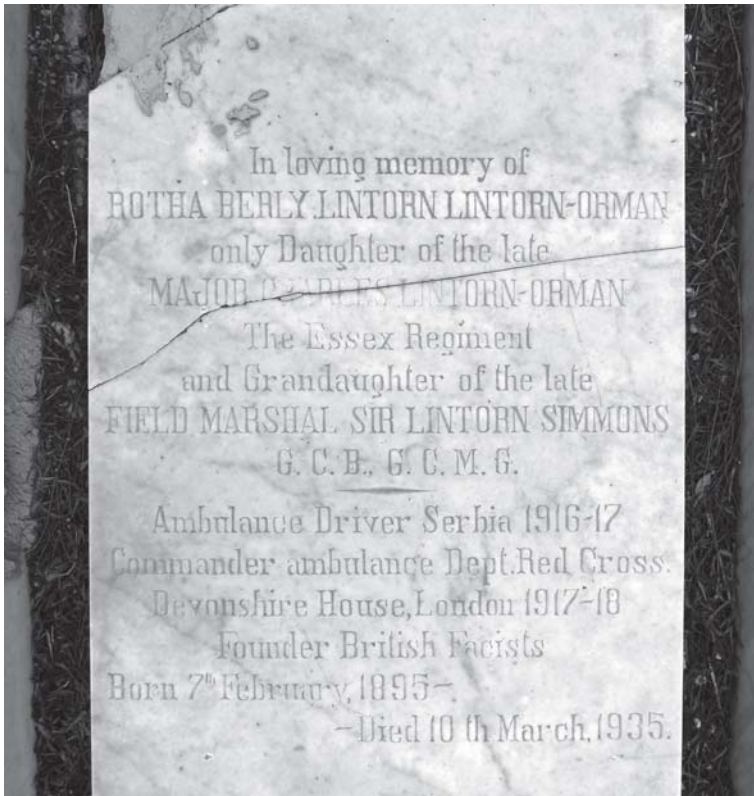 In loving memory of
ROTHA BERLY.LINTORN LINTORN-ORMAN
only Daughter of the late
MAJOR CHARLES LINTORN-ORMAN
The Essex Regiment
and Grandaughter of the late
FIELD MARSHAL SIR LINTORN SIMMONS
G. C. B., G. C. M. G.
Ambulance Driver Serbia 1916-17
Commander ambulance Dept.Red Cross.
Devonshire House,London 1917-18
Founder British Facists
Born 7th February, 1895-.
-Died 10 th March,1935.